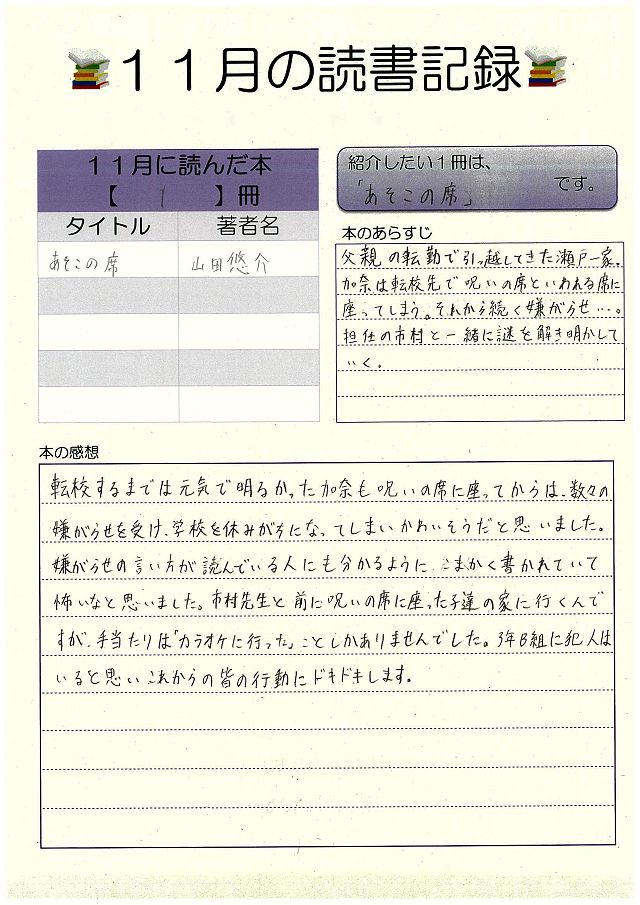 11月の読書記録
11月に読んだ本
【 1 】冊
タイトル 著者名
あそこの席 山田悠介
紹介したい1冊は、
「あそこの席」 です。
本のあらすじ
父親の転勤で引っ越してきた瀬戸一家。
加奈は転校先で呪いの席といわれる席に
座ってしまう。それから続く嫌がらせ…。
担任の市村と一緒に謎を解き明かして
いく。
本の感想
転校するまでは元気で明るかった加奈も呪いの席に座ってからは、数々の
嫌がらせを受け、学校を休みがちになってしまいかわいそうだと思いました。
嫌がらせの言い方が読んでいる人にも分かるように、こまかく書かれていて
怖いなと思いました。市村先生と前に呪いの席に座った子達の家に行くんで
すが、手当たりは「カラオケに行った」ことしかありませんでした。3年B組に犯人は
いると思いこれからの皆の行動にドキドキします。